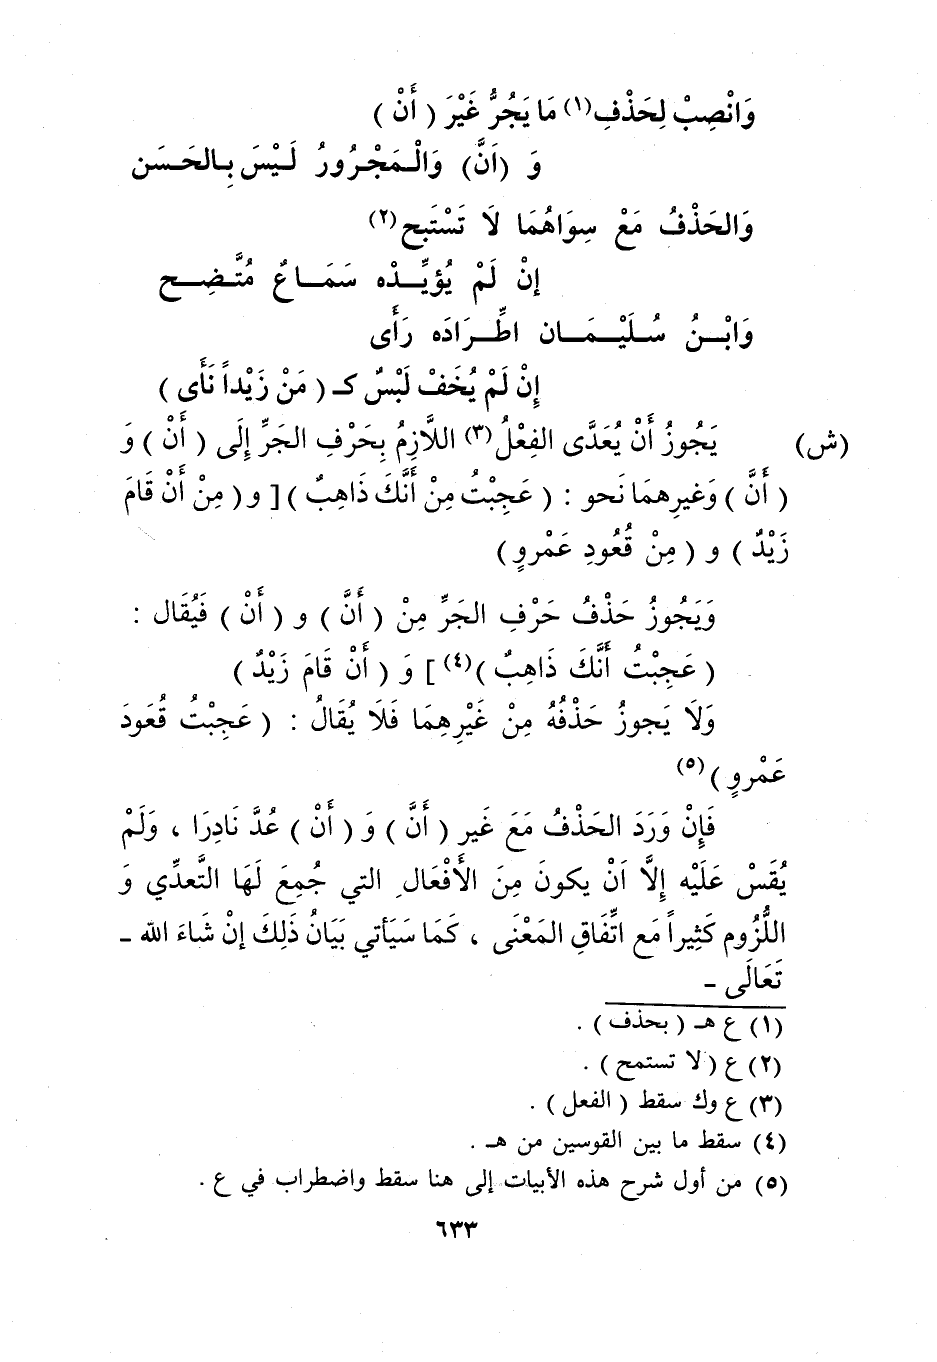 وَانْصِبْ لِحَذْفِ(١) مَا يَجُرُّ غَيْرَ ( أَنْ )
وَ (اَنَّ) وَالْمَجْرُورُ لَيْسَ بِالحَسَنِ
وَالحَذْفُ مَعْ سِوَاهُمَا لَا تَسْتَبِح(٢)
إنْ لَمْ يُؤيِّدْه سَمَاعٌ مُتَّضِح
وَابْنُ سُلَيْمَان اطِّرَادَه رَأَى
إِنْ لَمْ يُخَفْ لَبْسٌ كـ ( مَنْ زَيْداً نَأَى )
(ش) يَجُوزُ أَنْ يُعَدَّى الفِعْلُ(٣) اللاَّزِمُ بِحَرْفِ الجَرِّ إِلَى ( أَنْ ) وَ
( أَنَّ ) وَغَيرِهمَا نَحو : ( عَجِبْتُ مِنْ أَنَّكَ ذَاهِبٌ ) [ و ( مِنْ أَنْ قَامَ
زَيْدٌ ) و ( مِنْ قُعُودِ عَمْروٍ )
وَيَجُوزُ حَذْفُ حَرْفِ الجَرِّ مِنْ ( أَنَّ ) و ( أَنْ ) فَيُقَال :
( عَجِبْتُ أَنَّكَ ذَاهِبٌ )(٤) ] وَ ( أَنْ قَامَ زَيْدٌ )
وَلَا يَجوزُ حَذْفُهُ مِنْ غَيْرِهِمَا فَلَا يُقَالُ : ( عَجِبْتُ قُعُودَ
عَمْروٍ )(٥)
فَإِنْ وَرَدَ الحَذْفُ مَعَ غَير ( أَنَّ ) وَ ( أَنْ ) عُدَّ نَادِرَا ، وَلَمْ
يُقَسْ عَلَيْه إِلَّا اَنْ يكونَ مِنَ الأَفْعَالِ التي جُمِعَ لَهَا التَّعدِّي وَ
اللُّزُوم كَثِيراً مَع اتِّفَاقِ المَعْنَى ، كَمَا سَيَأتي بَيَانُ ذَلِكَ إنْ شَاءَ الله ـ
تَعَالَى ـ
(١) ع هـ ( بحذف ) .
(٢) ع ( لا تستمح ) .
(٣) ع وك سقط ( الفعل ) .
(٤) سقط ما بين القوسين من هـ .
(٥) من أول شرح هذه الأبيات إلى هنا سقط واضطراب في ع .
٦٣٣